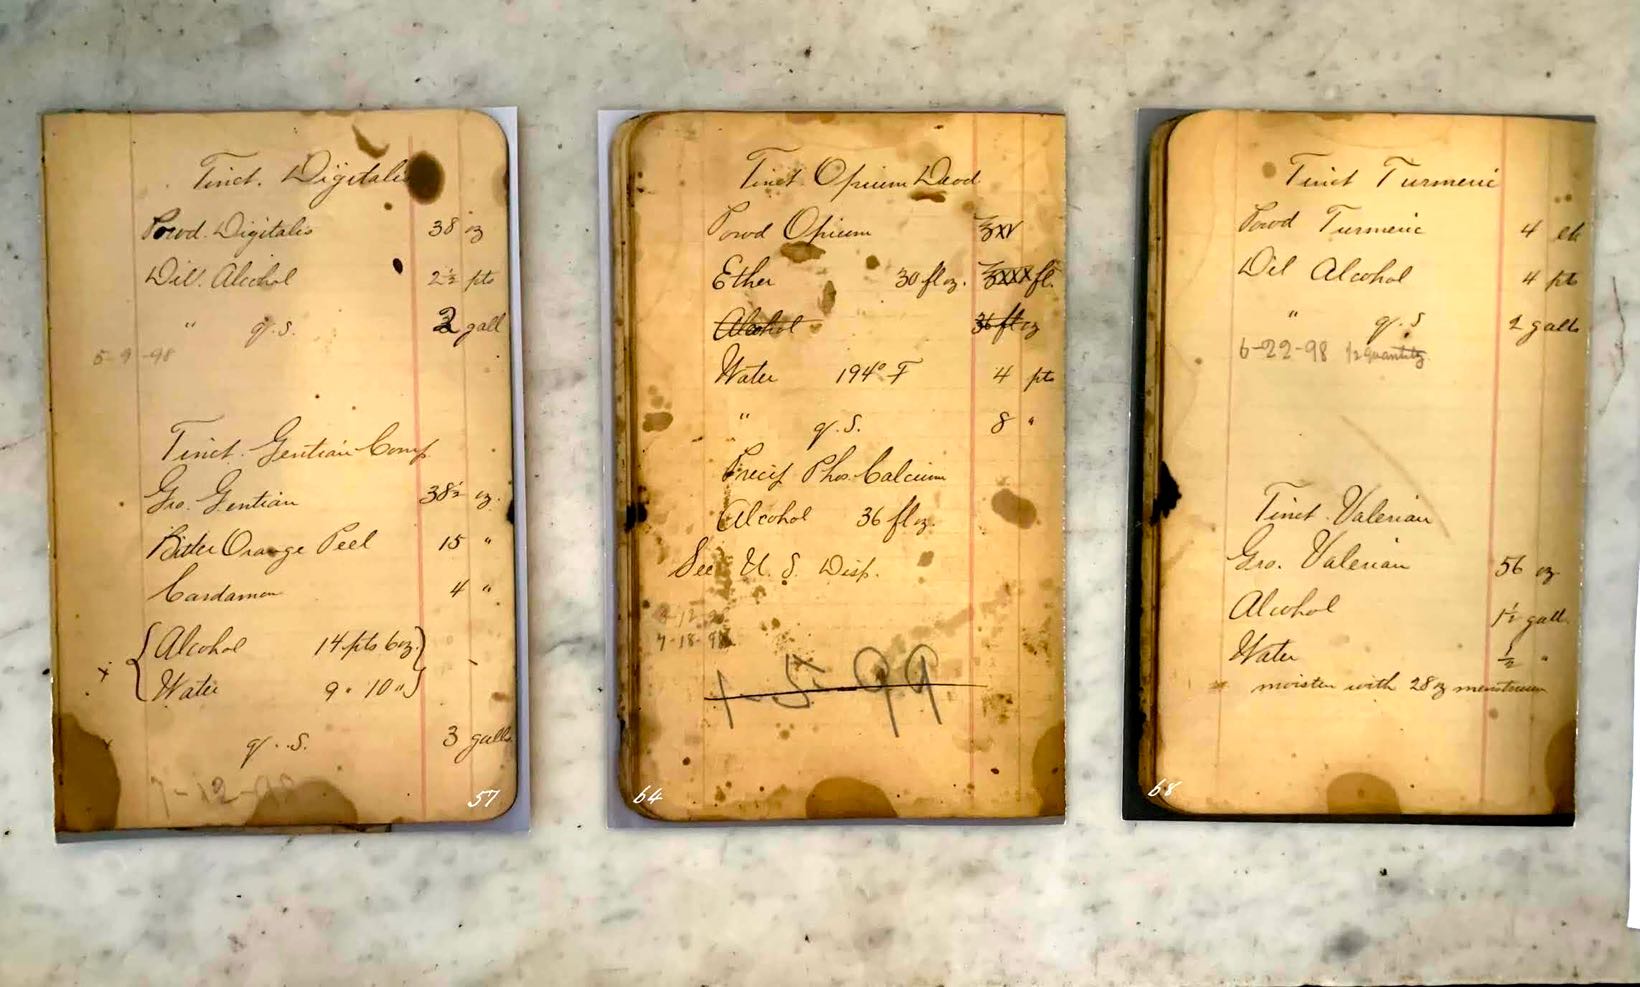 Tinct. Digitalis
Powd. Digitalis 38 oz
Dill. Alcohol 2½ pts
" q.s. gall
5-9-98
Tinct. Gentian Comp
Gro. Gentian 38½ oz.
Bitter Orange Peel 15 "
Cardamon 4 "
x { Alcohol 14 pts 6 oz. }
{ Water 9 " 10 " }
q.s. 3 galls
7-12-98
57
Tinct Opium Deod
Powd Opium ℥xv
Ether 30 fl oz. ℥xxx fl.
Alcohol 36 fl oz
Water 194° F 4 pts
" q.s. 8 "
Precip Phos. Calcium
Alcohol 36 fl oz.
See U. S. Disp.
7-18-98
1-5-99
64
Tinct Turmeric
Powd Turmeric 4 lb
Dil Alcohol 4 pts
" q.s 2 galls
6-22-98 ½ quantity
Tinct. Valerian
Gro. Valerian 56 oz
Alcohol 1½ gall.
Water ½ "
moisten with 28 oz menstruum
68